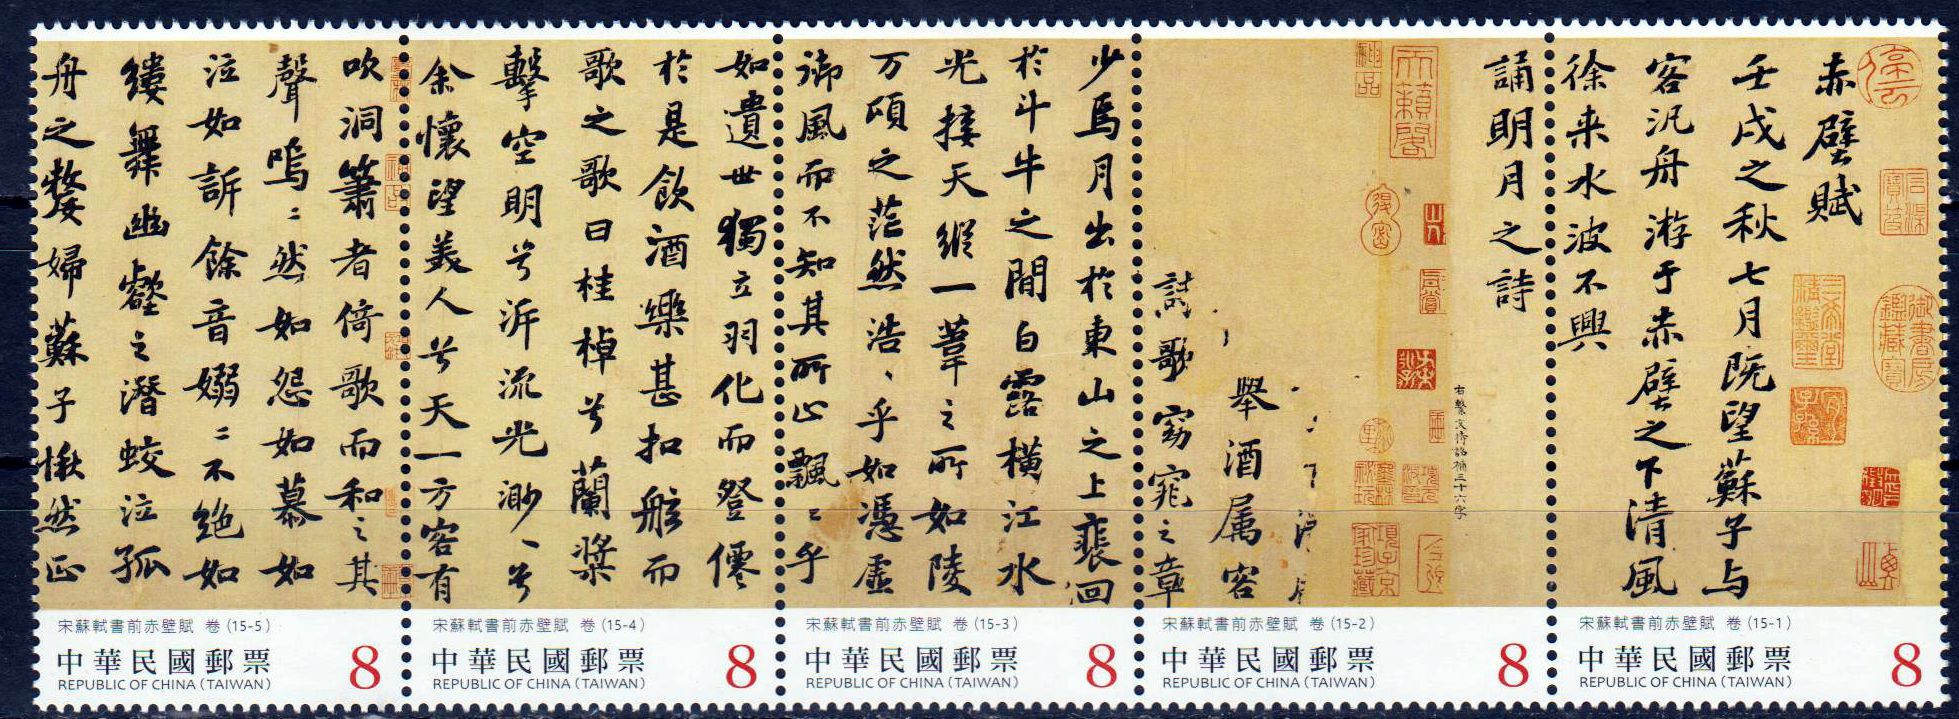 赤壁賦
壬戌之秋七月既望蘇子与
客汎舟游于赤壁之下清風
徐来水波不興
誦明月之詩
右繫文待詔補三十六字
舉酒属客
歌窈窕之章
少焉月出於東山之上裴回
於斗牛之間白露橫江水
光接天縱一葦之所如陵
万頃之茫然浩〻乎如馮虛
御風而不知其所止飄〻乎
如遺世獨立羽化而登僊
於是飲酒樂甚扣舷而
歌之歌曰桂棹兮蘭槳
擊空明兮泝流光渺〻兮
余懷望美人兮天一方客有
吹洞簫者倚歌而和之其
聲嗚〻然如怨如慕如
泣如訴餘音嫋〻不絕如
縷舞幽壑之潛蛟泣孤
舟之嫠婦蘇子愀然正
御書房鑑藏寶
三希堂精鑑璽
宜子孫
天籟閣
項子京家珍藏
宋蘇軾書前赤壁賦 卷 (15-5)
中華民國郵票 8
REPUBLIC OF CHINA (TAIWAN)
宋蘇軾書前赤壁賦 卷 (15-4)
中華民國郵票 8
REPUBLIC OF CHINA (TAIWAN)
宋蘇軾書前赤壁賦 卷 (15-3)
中華民國郵票 8
REPUBLIC OF CHINA (TAIWAN)
宋蘇軾書前赤壁賦 卷 (15-2)
中華民國郵票 8
REPUBLIC OF CHINA (TAIWAN)
宋蘇軾書前赤壁賦 卷 (15-1)
中華民國郵票 8
REPUBLIC OF CHINA (TAIWAN)